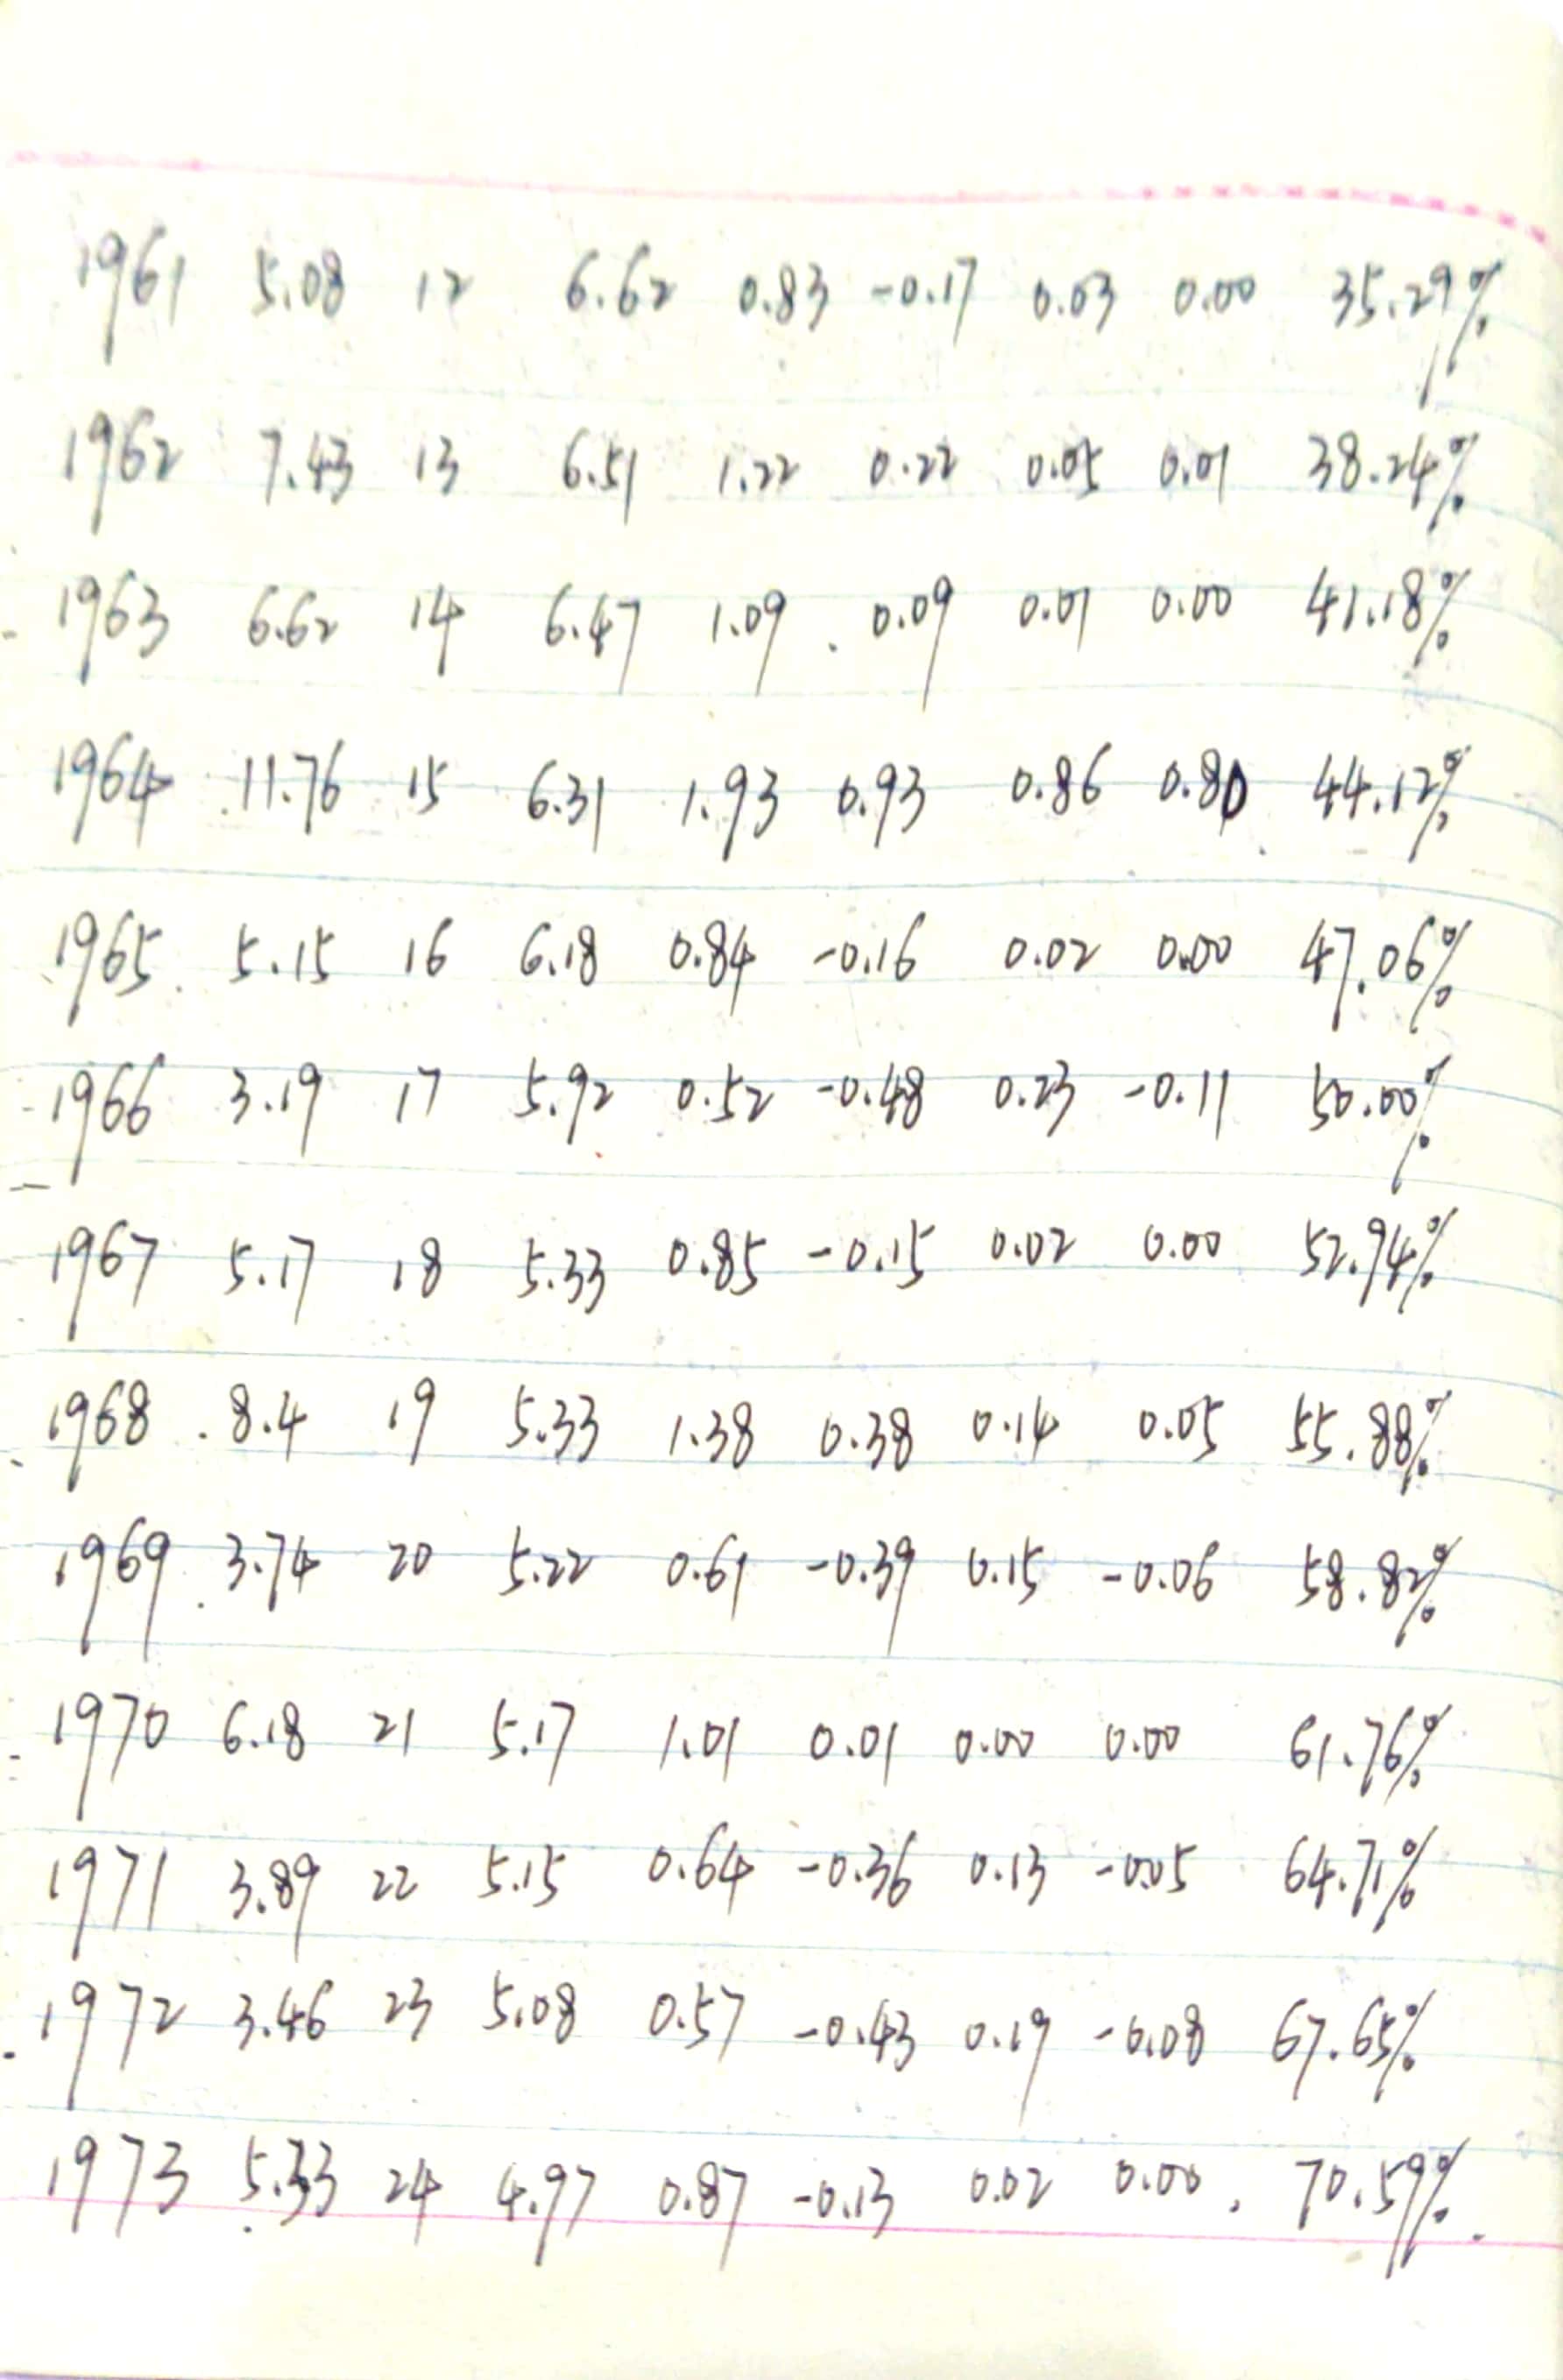 1961 5.08 12 6.62 0.83 -0.17 0.03 0.00 35.29%
1962 7.43 13 6.51 1.22 0.22 0.05 0.01 38.24%
1963 6.62 14 6.47 1.09 0.09 0.01 0.00 41.18%
1964 11.76 15 6.31 1.93 0.93 0.86 0.80 44.12%
1965 5.15 16 6.18 0.84 -0.16 0.02 0.00 47.06%
1966 3.19 17 5.92 0.52 -0.48 0.23 -0.11 50.00%
1967 5.17 18 5.33 0.85 -0.15 0.02 0.00 52.94%
1968 8.4 19 5.33 1.38 0.38 0.14 0.05 55.88%
1969 3.74 20 5.22 0.61 -0.39 0.15 -0.06 58.82%
1970 6.18 21 5.17 1.01 0.01 0.00 0.00 61.76%
1971 3.89 22 5.15 0.64 -0.36 0.13 -0.05 64.71%
1972 3.46 23 5.08 0.57 -0.43 0.19 -0.08 67.65%
1973 5.33 24 4.97 0.87 -0.13 0.02 0.00 70.59%